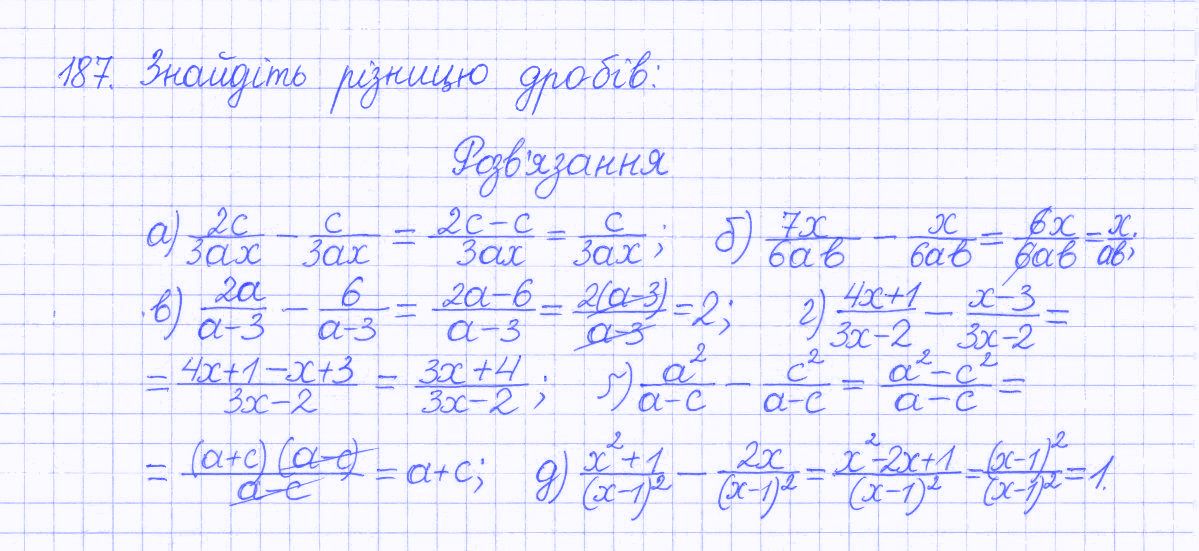 187. Знайдіть різницю дробів:
Розв'язання
а) 2c/3ax − c/3ax = (2c−c)/3ax = c/3ax; б) 7x/6ab − x/6ab = 6x/6ab = x/ab;
в) 2a/(a−3) − 6/(a−3) = (2a−6)/(a−3) = 2(a−3)/(a−3) = 2; г) (4x+1)/(3x−2) − (x−3)/(3x−2) =
= (4x+1−x+3)/(3x−2) = (3x+4)/(3x−2); ґ) a²/(a−c) − c²/(a−c) = (a²−c²)/(a−c) =
= (a+c)(a−c)/(a−c) = a+c; д) (x²+1)/(x−1)² − 2x/(x−1)² = (x²−2x+1)/(x−1)² = (x−1)²/(x−1)² = 1.